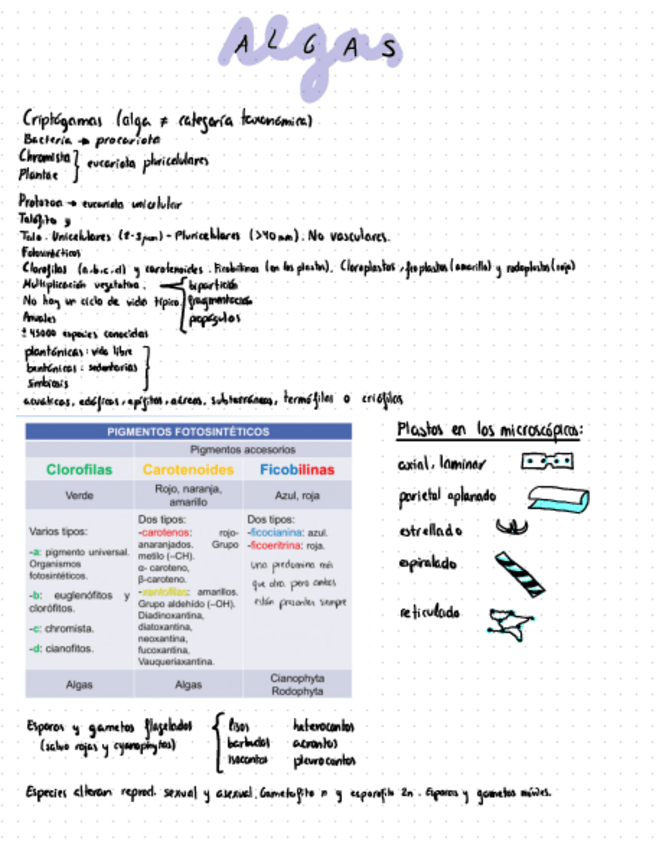 Algas
ALGAS
Criptógamas (alga ≠ categoría taxonómica)
Bacteria → procariota
Chromista } eucariota pluricelulares
Plantae
Protozoa → eucariota unicelular
Talófito y
Talo. Unicelulares (2-3µm) - Pluricelulares (>40mm). No vasculares.
Fotosintéticos
Clorofilas (a.b.c.d) y carotenoides. Ficobilinas (en los plastos). Cloroplastos, feoplastos (amarillo) y rodoplastos (rojo)
Multiplicación vegetativa. bipartición
No hay un ciclo de vida típico. fragmentación
Anuales propágulos
± 45000 especies conocidas
planctónicas: vida libre
bentónicas: sedentarias
Simbiosis
acuáticas, edáficas, epífitas, aéreas, subterráneas, termófilas o criófilas
PIGMENTOS FOTOSINTÉTICOS
Pigmentos accesorios
Clorofilas Carotenoides Ficobilinas
Verde Rojo, naranja, amarillo Azul, roja
Varios tipos:
-a: pigmento universal. Organismos fotosintéticos.
-b: euglenófitos y clorófitos.
-c: chromista.
-d: cianofitos.
Dos tipos:
-carotenos: rojo-anaranjados. Grupo metilo (–CH).
α- caroteno,
β-caroteno.
-xantofilas: amarillos.
Grupo aldehido (–OH).
Diadinoxantina,
diatoxantina,
neoxantina,
fucoxantina,
Vauqueriaxantina.
Dos tipos:
-ficocianina: azul.
-ficoeritrina: roja.
una predomina más
que otra, pero ambas
están presentes siempre
Algas Algas Cianophyta
Rodophyta
Plastos en los microscópicos:
axial, laminar
parietal aplanado
estrellado
espiralado
reticulado
Esporas y gametos flagelados { lisos heterocontos
(salvo rojas y cyanophytas) barbudos acrontos
isocontos pleurocontos
Especies alteran reprod. sexual y asexual. Gametofito n y esporofito 2n. Esporas y gametos móviles.